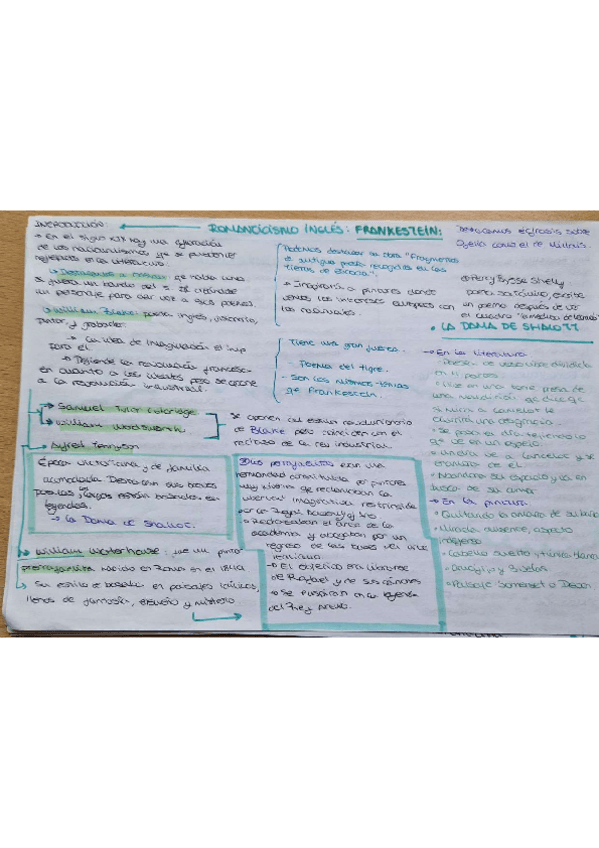 INTRODUCCIÓN:
ROMANTICISMO INGLÉS: FRANKESTEIN:
→ En el siglo XIX hay una exploración
de los nacionalismos ya se puede
en la literatura
→ Destacamos a Ossian: que había
si fuera un bardo del s III creándose
un personaje para dar voz a sus poemas.
→ William Blake: poeta inglés, visionario,
pintor, y grabador.
→ La idea de imaginación el
para él
→ Defiende la revolución francesa
en cuanto a los ideales pero se opone
a la revolución industrial.
Podemos destacar su obra "Fragmentos
de antigua poesía recogidos en las
tierras de Escocia".
los nacionales.
Tiene una gran fuerza.
- Poema del tigre.
- Son los mismos temas
que Frankestein
→ Samuel Tylor Coleridge
→ William Woodsworth
Se oponen al estilo revolucionario
de Blake pero coinciden con el
rechazo de la rev industrial.
→ Alfred Tennyson
Época victoriana y de familia
acomodada. Destacan sus breves
poemas, largos están basados en
leyendas.
→ La Dama de Shallot.
→ William Waterhouse: fue un pintor
prerrafaelita nacido en Roma en el 1849
→ Su estilo se basaba en paisajes idílicos,
llenos de fantasía, ensueño y misterio.
Los prerrafaelitas eran una
hermandad constituida por pintores
muy jóvenes que reclamaban la
libertad imaginativa restringida
por la Royal Academy of Arts
→ Rechazaban el arte de la
academia y abogaban por un
regreso de las bases del arte
→ El objetivo era librarse
de Rafael y de sus cánones
→ Se inspiran en la leyenda
del Rey Arturo.
Destacamos écfrasis sobre
Ofelia como el de Millais.
Percy Bysse Shelly
poeta satánico, escribe
un poema después de ver
el cuadro "la medusa de Leonardo"
• LA DAMA DE SHALOTT
→ En la literatura
- Poema de 20 estrofas dividida
en 4 partes
- Vive en una torre presa de
una maldición que dice que
si mira a Camelot le
ocurrirá una desgracia.
- Se pasa el día tejiendo lo
que ve en un espejo.
- Un día ve a Lancelot y se
enamora de él.
- Abandona su espejo y va en
busca de su amor.
→ En la pintura.
- Mirada ausente, aspecto
- Cabello suelto y túnica blanca
- Crucifijo y 3 velas
- Paisaje Somerset o Devon